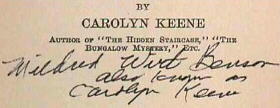 BY
CAROLYN KEENE
AUTHOR OF "THE HIDDEN STAIRCASE," "THE
BUNGALOW MYSTERY," ETC.
Mildred Wirt Benson
also known as
Carolyn Keene